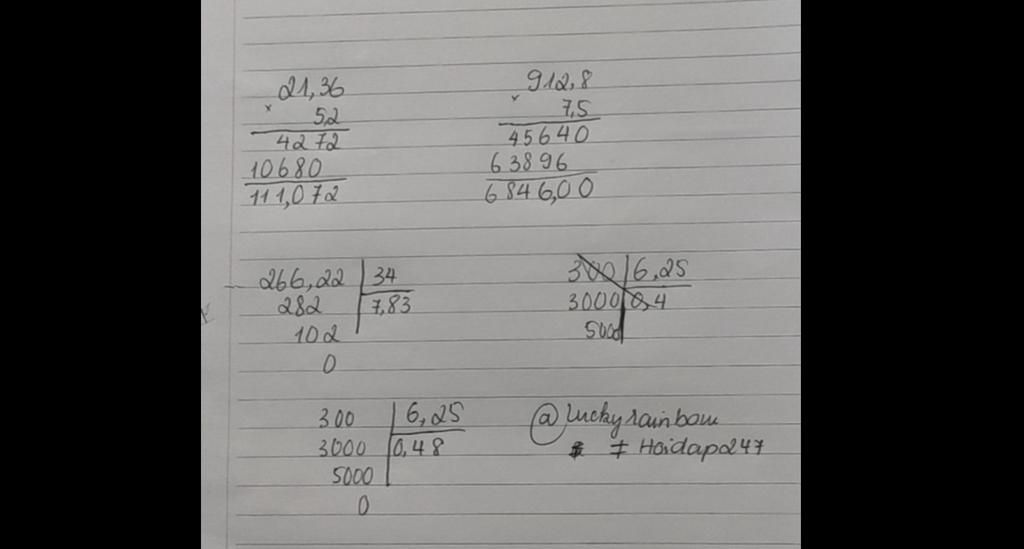 21,36
× 5,2
4272
10680
111,072
912,8
× 7,5
45640
63896
6846,00
266,22 34
282 7,83
102
0
300 6,25
3000 0,4
5000
300 6,25
3000 0,48
5000
0
@luckyrainbow
# Hoidap247